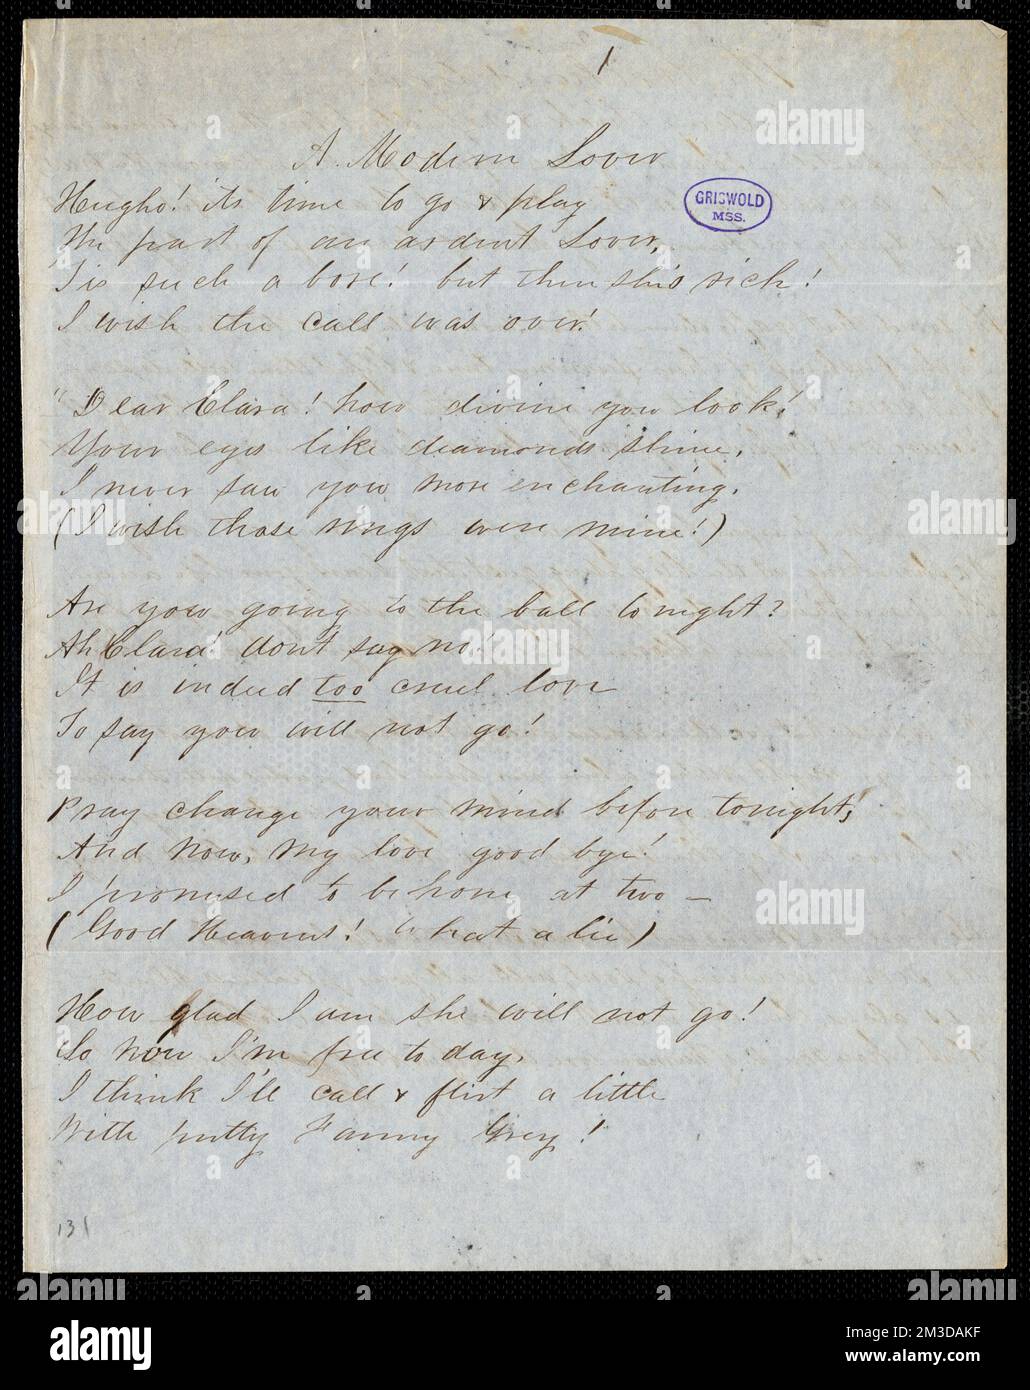 1
A Modern Lover
Heigho! its time to go & play
GRISWOLD
MSS.
The part of an ardent Lover,
Tis such a bore! but then she's rich!
I wish the call was over!
"Dear Clara! how divine you look!
Your eyes like diamonds shine,
I never saw you more enchanting.
(I wish those rings were mine!)
Are you going to the ball tonight?
Ah Clara! don't say no!
It is indeed too cruel love
To say you will not go!
Pray change your mind before tonight,
And now, my love good bye!
I promised to be home at two —
(Good Heavens! What a lie)
How glad I am she will not go!
So now I'm free to day,
I think I'll call & flirt a little
With pretty Fanny Grey!
131
alamy
Image ID: 2M3DAKF
www.alamy.com